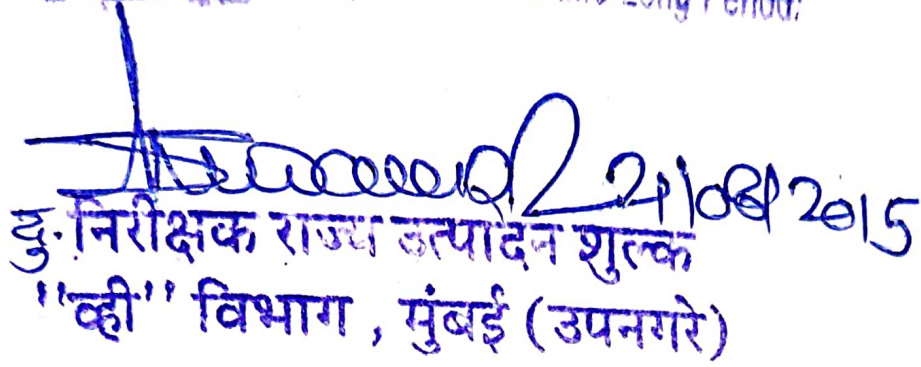 21/08/2015
दु.निरीक्षक राज्य उत्पादन शुल्क
"व्ही" विभाग, मुंबई (उपनगरे)